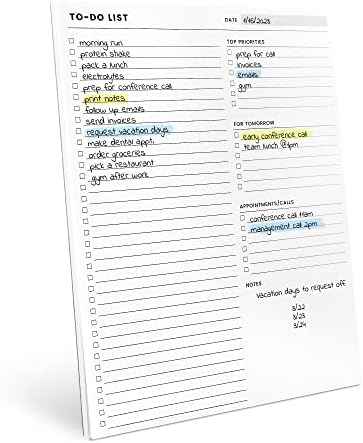 TO-DO LIST
DATE 1/15/2023
morning run
protein shake
pack a lunch
electrolytes
prep for conference call
print notes
follow up emails
send invoices
request vacation days
make dental appt.
order groceries
pick a restaurant
gym after work
TOP PRIORITIES
prep for call
invoices
emails
gym
FOR TOMORROW
early conference call
team lunch @1pm
APPOINTMENTS/CALLS
conference call 11am
management call 2pm
NOTES
Vacation days to request off
3/22
3/23
3/24